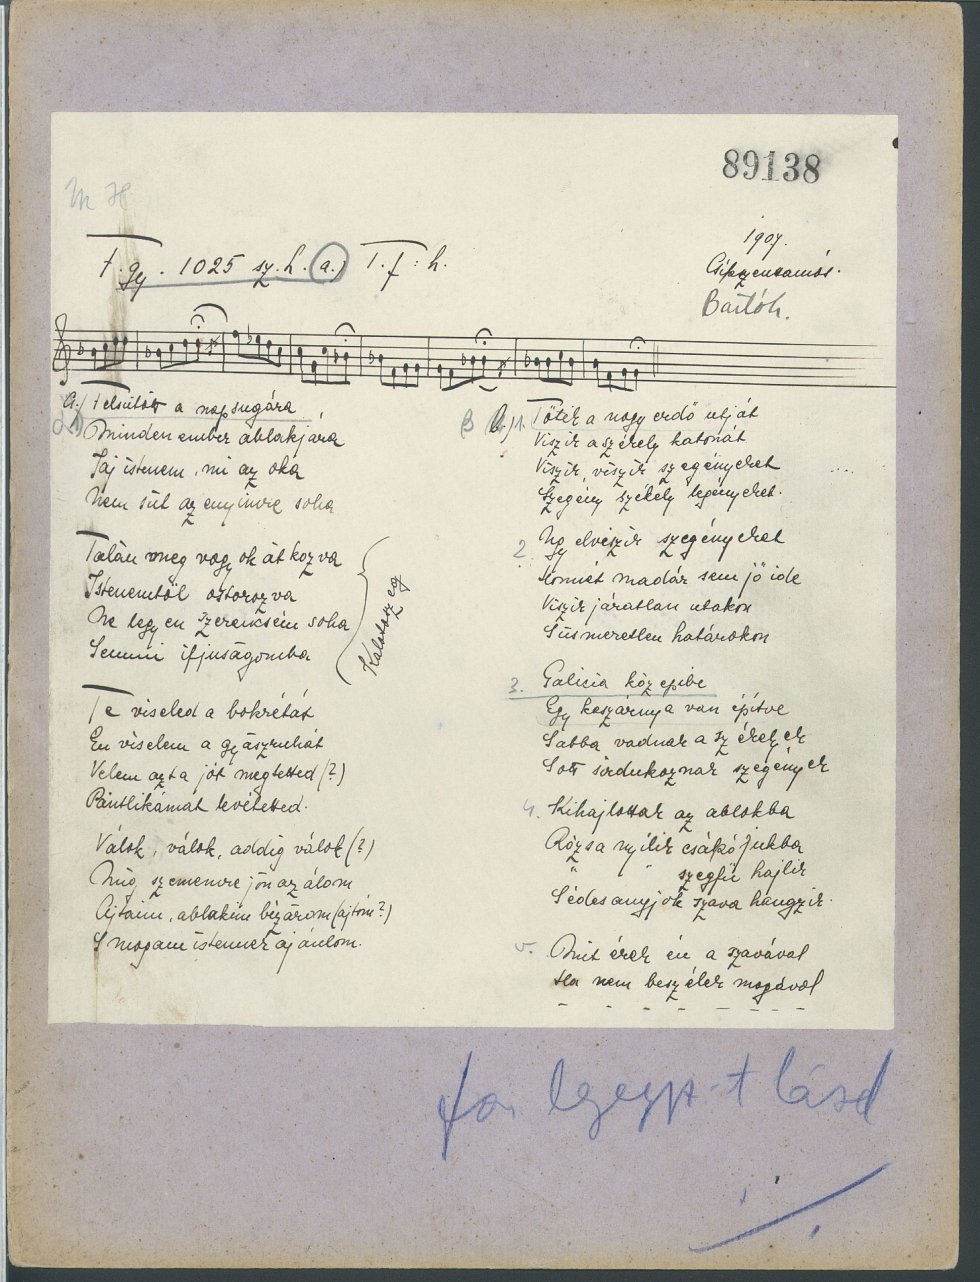 89138
M H
F. gy. 1025 sz. h. a.) T. f: h.
1907.
Csíkszentamás.
Bartók.
a.) Felsütött a napsugára
Minden ember ablakjára
Jáj istenem, mi az oka
Nem süt az enyimre soha
Talán meg vagyok átkozva
Istenemtől ostorozva
Ne legyen szerencsém soha
Semmi ifjuságomba
Kalotaszeg
Te viseled a bokrétát
En viselem a gyászruhát
Velem azt a jót megtetted (?)
Pántlikámat levétetted.
Válok, válok, addig válok (?)
Míg szememre jön az álom
Ajtaim, ablakim bézárom (ajtóm?)
S magam istennek ajánlom.
B b.) 1. Törik a nagy erdő utját
Viszik a székely katonát
Viszik, viszik szegényeket
Szegény székely legényeket.
2. Ugy elviszik szegényeket
Honnét madár sem jő ide
Viszik járatlan utakon
S üsmeretlen határokon
3. Galicia közepibe
Egy kaszárnya van építve
Sabba vadnak a székelyek
Sott sirdukoznak szegények
4. Kihajlottak az ablokba
Rózsa nyilik csákójukba
" " szegfü hajlik
S édes anyjok szava hangzik.
5. Mit érek én a szavával
Ha nem beszélek magával